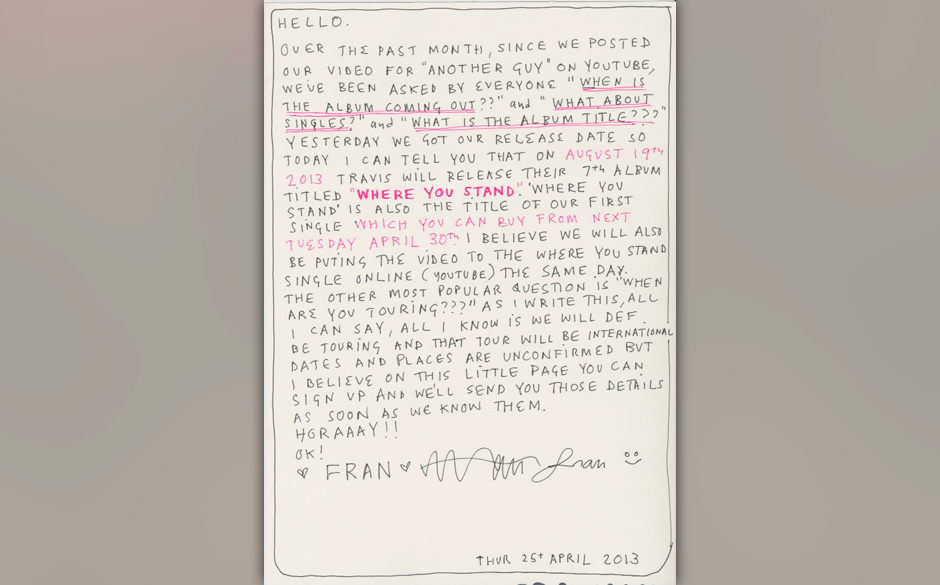 HELLO.
OVER THE PAST MONTH, SINCE WE POSTED
OUR VIDEO FOR "ANOTHER GUY" ON YOUTUBE,
WE'VE BEEN ASKED BY EVERYONE "WHEN IS
THE ALBUM COMING OUT??" and "WHAT ABOUT
SINGLES?" and "WHAT IS THE ALBUM TITLE???"
YESTERDAY WE GOT OUR RELEASE DATE SO
TODAY I CAN TELL YOU THAT ON AUGUST 19TH
2013 TRAVIS WILL RELEASE THEIR 7TH ALBUM
TITLED "WHERE YOU STAND". 'WHERE YOU
STAND' IS ALSO THE TITLE OF OUR FIRST
SINGLE WHICH YOU CAN BUY FROM NEXT
TUESDAY APRIL 30TH. I BELIEVE WE WILL ALSO
BE PUTING THE VIDEO TO THE WHERE YOU STAND
SINGLE ONLINE (YOUTUBE) THE SAME DAY.
THE OTHER MOST POPULAR QUESTION IS "WHEN
ARE YOU TOURING???" AS I WRITE THIS, ALL
I CAN SAY, ALL I KNOW IS WE WILL DEF.
BE TOURING AND THAT TOUR WILL BE INTERNATIONAL
DATES AND PLACES ARE UNCONFIRMED BUT
I BELIEVE ON THIS LITTLE PAGE YOU CAN
SIGN UP AND WE'LL SEND YOU THOSE DETAILS
AS SOON AS WE KNOW THEM.
HORAAAY!!
OK!
♡ FRAN ♡ fran
THUR 25T APRIL 2013